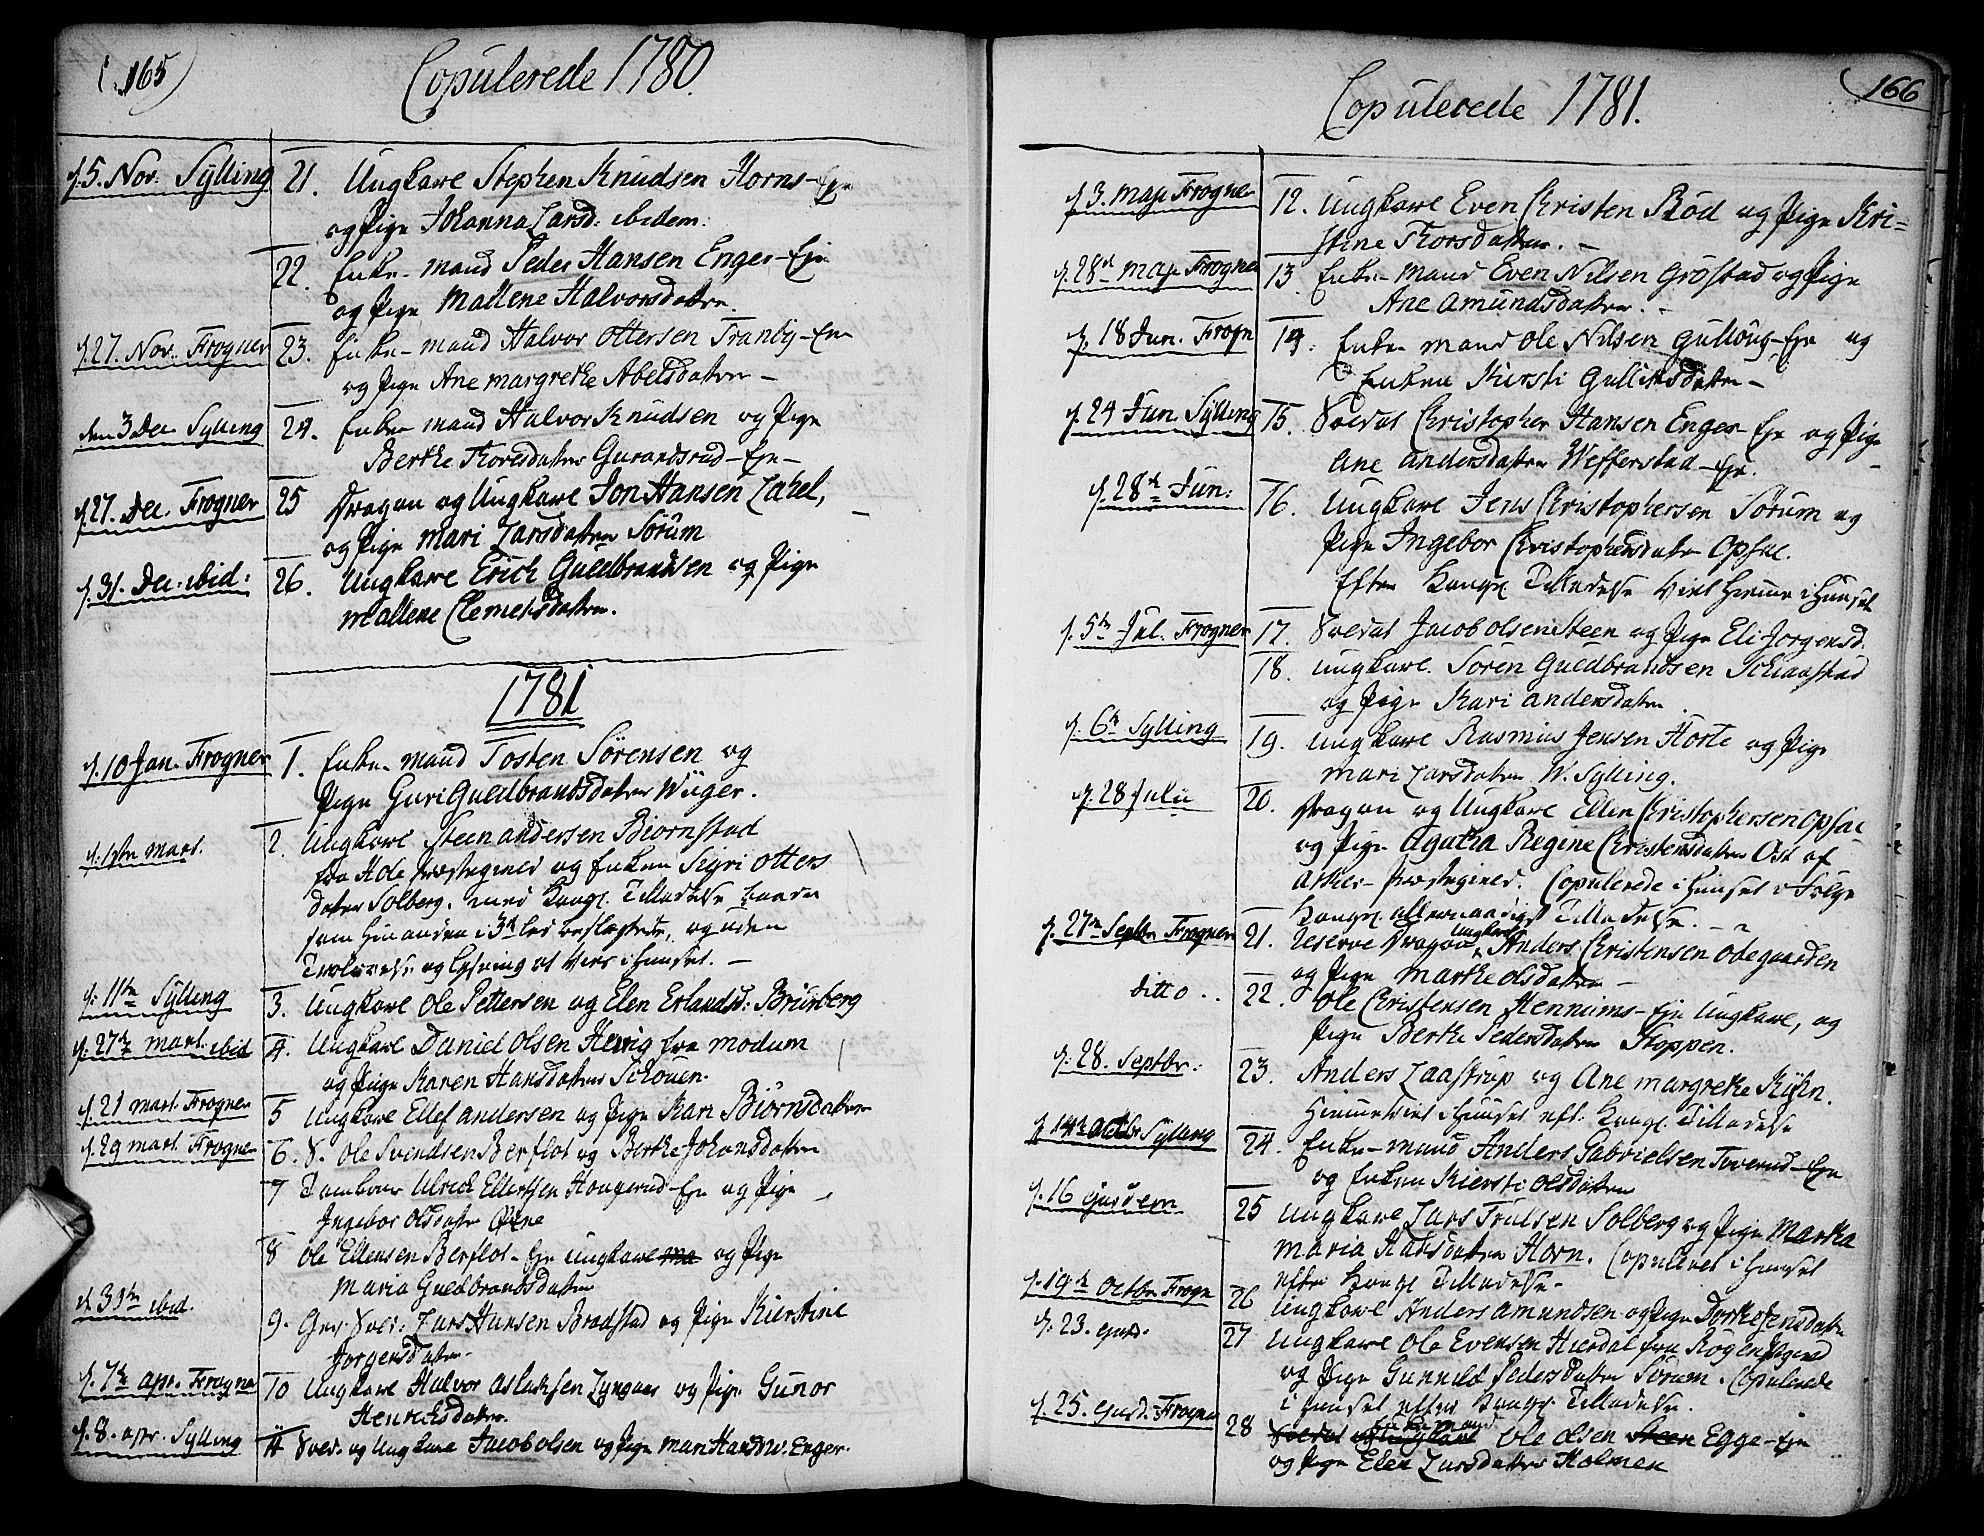 (165)
Copulerede 1780.
d. 5. Nov. Sylling 21. Ungkarl Stephen Knudsen Horns-Eje
og Pige Johanna Larsd. ibidem.
22. Enke-mand Peder Hansen Enger-Eje
og Pige Mallene Halvorsdatter.
d. 27. Nov. Frogner 23. Enke-mand Halvor Ottersen Tranby-Eje
og Pige Ane Margrethe Abelsdatter -
den 3 Dec. Sylling 24. Enke-mand Halvor Knudsen og Pige
Berthe Thoresdatter Gurandsrud-Eje-
d. 27. Dec. Frogner 25 Dragon og Ungkarl Jon Hansen Lahel,
og Pige Mari Larsdatter Sørum
d. 31. Dec. ibid: 26. Ungkarl Erich Guldbrandsen og Pige
Mallene Clemetsdatter.
1781
d. 10 Jan. Frogner 1. Enke-mand Tosten Sørensen og
Pige Guri Guldbrandsdatter Wiiger.
d. 1ste Mart. 2. Ungkarl Steen Andersen Biørnstad
fra Hole Præstegield og Enken Sigri Otters
datter Solberg, med Kongl. Tilladelse baade
som hinanden i 3die led beslægtede, og uden
Trolovelse og Lysning at vies i huuset. -
d. 11te Sylling 3. Ungkarl Ole Pettersen og Elen Erlandsd: Brurberg
d. 27de Mart. ibid 4. Ungkarl Daniel Olsen Hervig fra Modum
og Pige Karen Hansdatter Schouen.
d. 21 Mart. Frogner 5 Ungkarl Ellef Andersen og Pige Kari Biørnsdatter
d. 29 Mart. Frogner 6. S. Ole Svendsen Berflot og Berthe Johansdatter
7 Tambour Ulrich Ellertsen Hougerud-Eje og Pige
Ingebor Olsdatter
8 Ole Ellensen Berflot-Eje Ungkarl og Pige
Maria Guldbrandsdatter
d. 31te ibid. 9. Gev. Sold: Lars Hansen Brødstad og Pige Kierstine
Jørgensdatter
d. 7de Apr. Frogner 10 Ungkarl Halvor Aslaksen Lyngaas og Pige Gunor
Henrichsdatter.
d. 8. Apr. Sylling 11 Sold. og Ungkarl Jacob Olsen og Pige Mari Hansd. W. Enger.
166
Copulerede 1781.
d. 3. Maji Frogner 12. Ungkarl Even Christen Rød og Pige Kri-
stine Thorsdatter. -
d. 28de Maji Frogner 13. Enke-mand Even Nilsen Grøstad og Pige
Ane Amundsdatter. -
d. 18 Jun. Frogn 14. Enke-mand Ole Nilsen Gulloug-Eje og
Enken Kiersti Gulliksdatter -
d. 24 Jun. Sylling 15. Soldat Christopher Hansen Enger Eje og Pige
Ane Andersdatter Wefferstad-Eje.
d. 28de Jun: 16. Ungkarl Jens Christophersen Sørum og
Pige Ingebor Christophersdatter Opsal.
Efter Kongl Tilladelse viet hiemme i Huuset
d. 5te Jul. Frogner 17. Soldat Jacob Olsen Steen og Pige Eli Jørgensd.
18. Ungkarl Søren Guldbrandsen Schiaastad
og Pige Kari Andersdatter.
d. 6te Sylling 19. Ungkarl Rasmus Jensen Horte og Pige
Mari Larsdatter W. Sylling.
d. 28 Julii 20. Dragon og Ungkarl Ellen Christophersen Opsal
og Pige Agatha Regine Christensdatter Ost af
Asker-Præstegield. Copulerede i Huuset i Følge
Kongl. allernaadigst Tilladelse. -
d. 27de Septbr Frogner 21. Reserve Dragon Ungkarl Anders Christensen Ødegaarden
og Pige Marthe Olsdatter -
ditto . . 22. Ole Christensen Hennums-Eje Ungkarl, og
Pige Berthe Pedersdatter Stoppen.
d. 28. Septbr. 23. Anders Laastrup og Ane Margrethe Kyhn.
Hiemmeviet i Huuset eft. Kongl. Tilladelse
d. 14de Octbr Sylling 24. Enke-mand Anders Gabrielsen Toverud-Eje
og Enken Kiersti Olsdatter
d. 16 ejusdem 25 Ungkarl Lars Trulsen Solberg og Pige Martha
Maria Hansdatter Horn. Copuleret i Huuset
efter Kongl Tilladelse.
d. 19de Octbr Frogn 26 Ungkarl Anders Amundsen og Pige Dorthe Jensdatter
d. 23. ejusd. 27 Ungkarl Ole Evensen Hierdal fra Røgen Pgield
og Pige Gunnild Pedersdatter Sørum. Copulerede
i Huuset efter Kongl. Tilladelse.
d. 25. ejusd. Frogner 28 Soldat Ungkarl Enkemand Ole Olsen Steen Egge-Eje
og Pige Elen Larsdatter Holmen